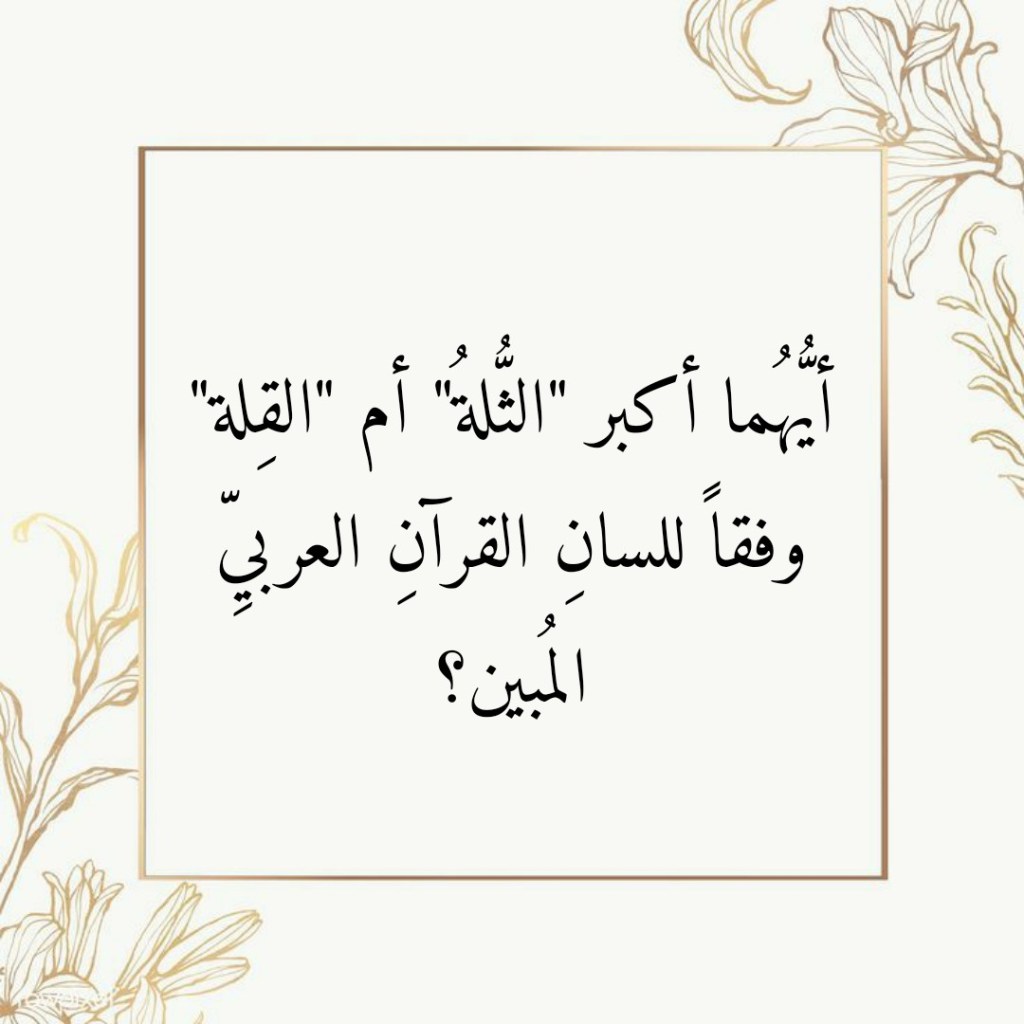 أيُّهُما أكبر "الثُّلةُ" أم "القِلة"
وفقاً للسانِ القرآنِ العربيِّ
المُبين؟
rawpixel